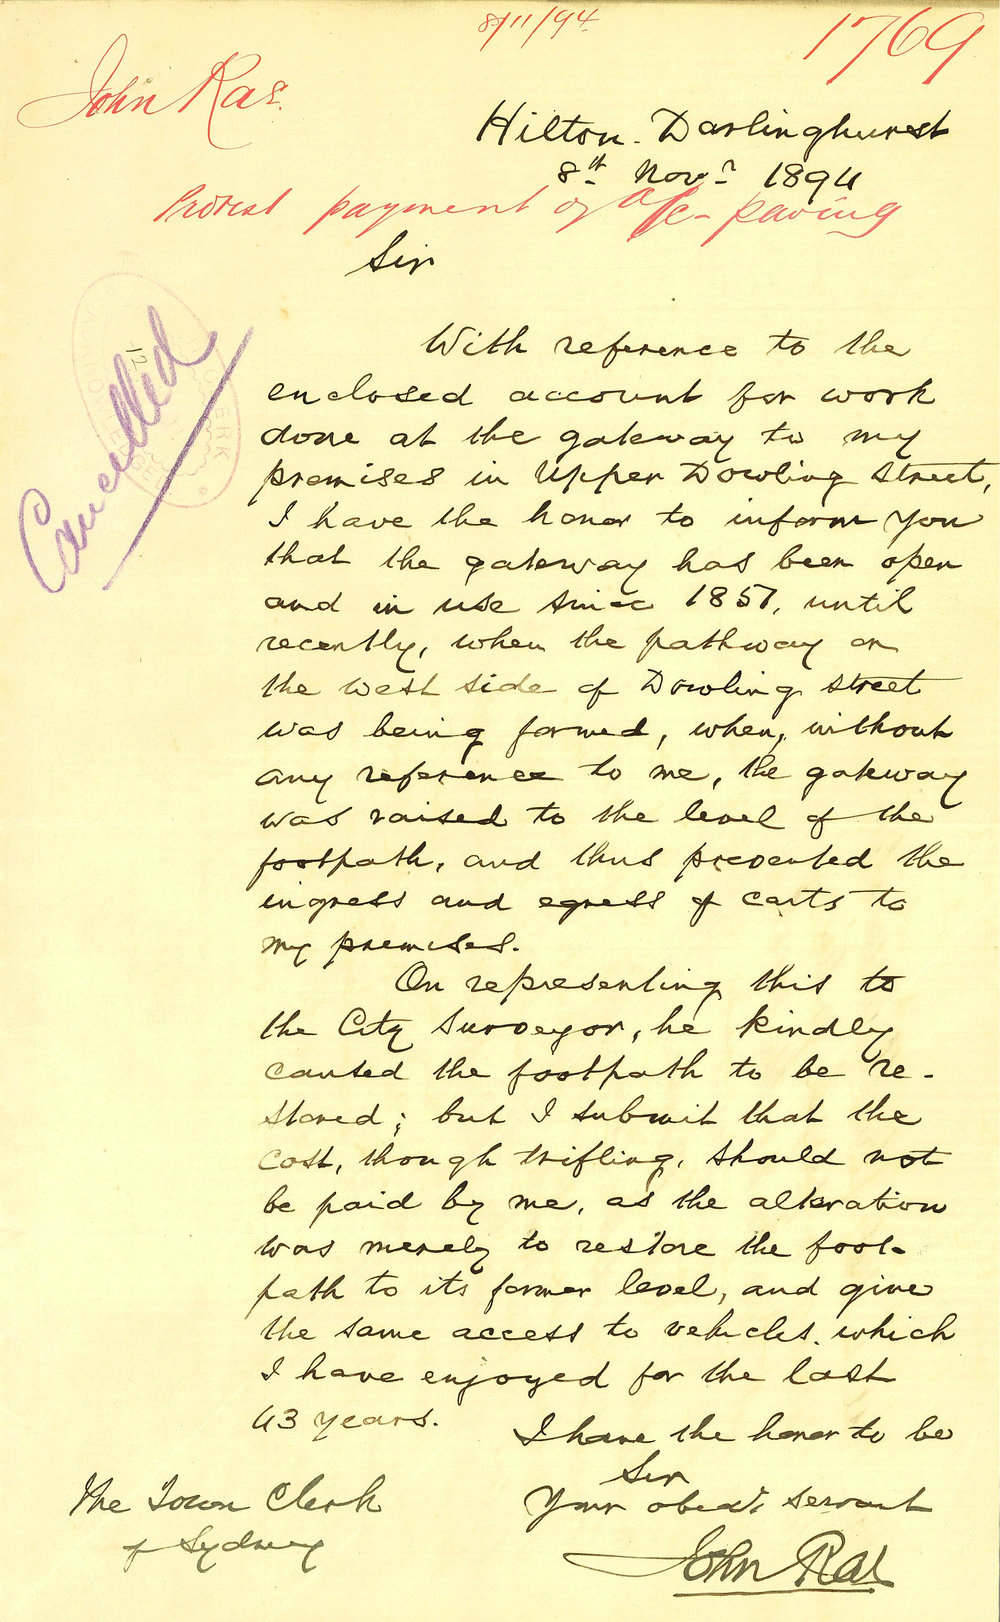 8/11/94
1769
John Rae.
Hilton. Darlinghurst
8th Novr 1894
Protest payment of a/c - paving
Sir
Cancelled
12
With reference to the
enclosed account for work
done at the gateway to my
premises in Upper Dowling Street,
I have the honor to inform you
that the gateway has been open
and in use since 1851, until
recently, when the pathway on
the west side of Dowling Street
was being formed, when, without
any reference to me, the gateway
was raised to the level of the
footpath, and thus prevented the
ingress and egress of carts to
my premises.
On representing this to
the City Surveyor, he kindly
caused the footpath to be re-
stored; but I submit that the
cost, though trifling, should not
be paid by me, as the alteration
was merely to restore the foot-
path to its former level, and give
the same access to vehicles. which
I have enjoyed for the last
43 years.
I have the honor to be
Sir
Your obedt servant
John Rae
The Town Clerk
of Sydney